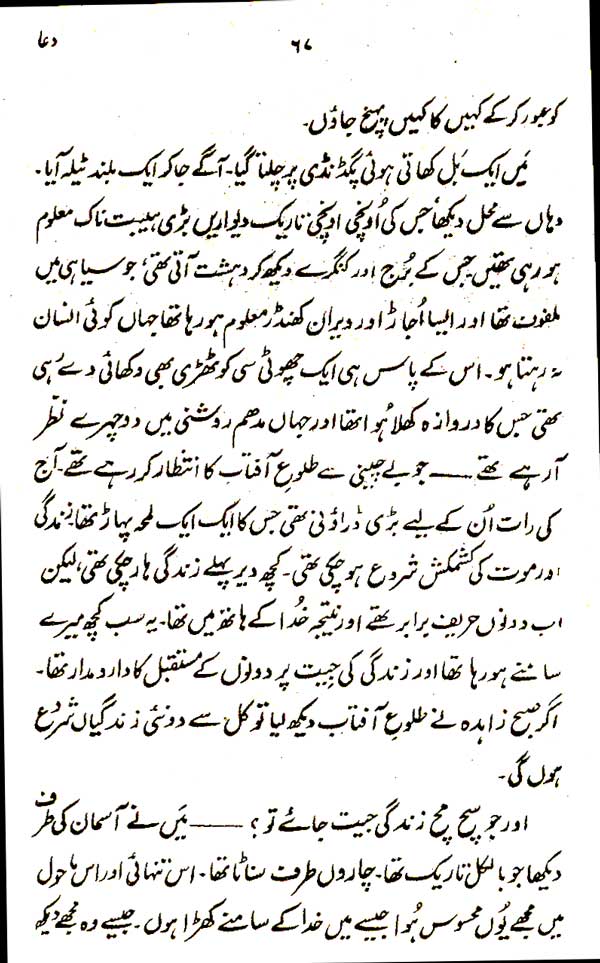 دعا ۶۷
کو عبور کر کے کہیں کا کہیں پہنچ جاؤں۔
مَیں ایک بَل کھاتی ہوئی پگڈنڈی پر چلتا گیا۔ آگے جا کر ایک بلند ٹیلہ آیا۔
وہاں سے محل دیکھا جس کی اُونچی اونچی تاریک دیواریں بڑی ہیبت ناک معلوم
ہو رہی تھیں جس کے بُرج اور کنگرے دیکھ کر دہشت آتی تھی، جو سیاہی میں
ملفوف تھا اور ایسا اُجاڑ اور ویران کھنڈر معلوم ہو رہا تھا جہاں کوئی انسان
نہ رہتا ہو۔ اس کے پاس ہی ایک چھوٹی سی کوٹھڑی بھی دکھائی دے رہی
تھی جس کا دروازہ کھلا ہُوا تھا اور جہاں مدھم روشنی میں دو چہرے نظر
آ رہے تھے —— جو بے چینی سے طلوعِ آفتاب کا انتظار کر رہے تھے۔ آج
کی رات اُن کے لیے بڑی ڈراؤنی تھی جس کا ایک ایک لمحہ پہاڑ تھا۔ زندگی
اور موت کی کشمکش شروع ہو چکی تھی۔ کچھ دیر پہلے زندگی ہار چکی تھی، لیکن
اب دونوں حریف برابر تھے اور نتیجہ خُدا کے ہاتھ میں تھا۔ یہ سب کچھ میرے
سامنے ہو رہا تھا اور زندگی کی جیت پر دونوں کے مستقبل کا دارومدار تھا۔
اگر صبح زاہدہ نے طلوعِ آفتاب دیکھ لیا تو کل سے دو نئی زندگیاں شروع
ہوں گی۔
اور جو سچ مچ زندگی جیت جائے تو؟ —— مَیں نے آسمان کی طرف
دیکھا جو بالکل تاریک تھا۔ چاروں طرف سناٹا تھا۔ اس تنہائی اور اس ماحول
میں مجھے یُوں محسوس ہُوا جیسے میں خدا کے سامنے کھڑا ہوں۔ جیسے وہ مجھے دیکھ